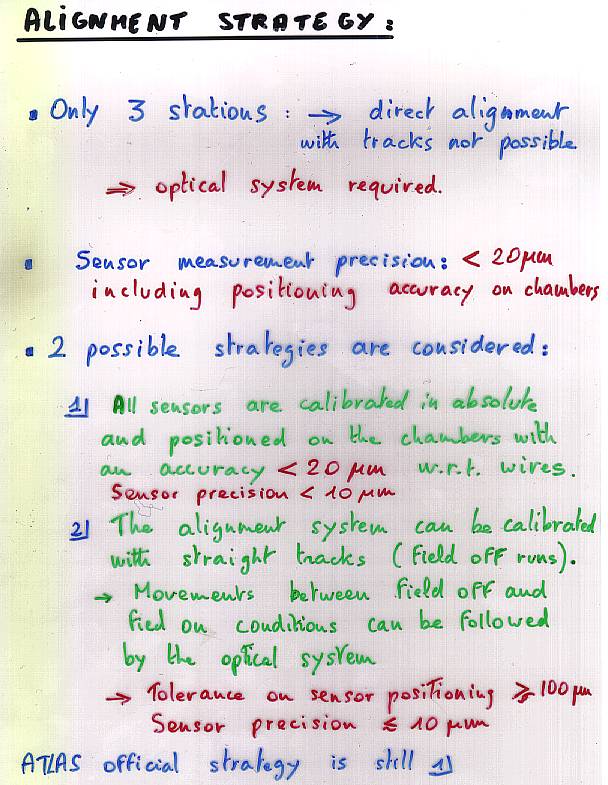 ALIGNMENT STRATEGY:
▪ Only 3 stations : → direct alignment
with tracks not possible
⇒ optical system required.
▪ Sensor measurement precision: < 20 μm
including positioning accuracy on chambers
▪ 2 possible strategies are considered:
1) All sensors are calibrated in absolute
and positioned on the chambers with
an accuracy < 20 μm w.r.t. wires.
Sensor precision < 10 μm
2) The alignment system can be calibrated
with straight tracks (field off runs).
→ Movements between field off and
fied on conditions can be followed
by the optical system
→ Tolerance on sensor positioning ≥ 100 μm
Sensor precision ≤ 10 μm
ATLAS official strategy is still 1)